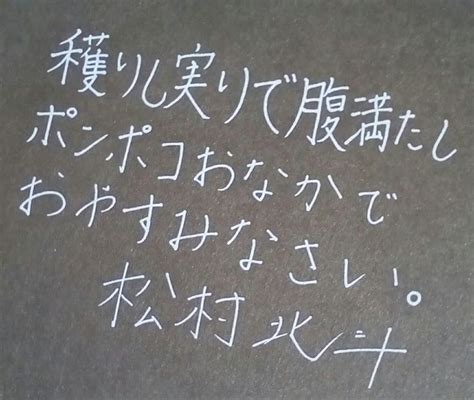 穫りし実りで腹満たし
ポンポコおなかで
おやすみなさい。
松村北斗